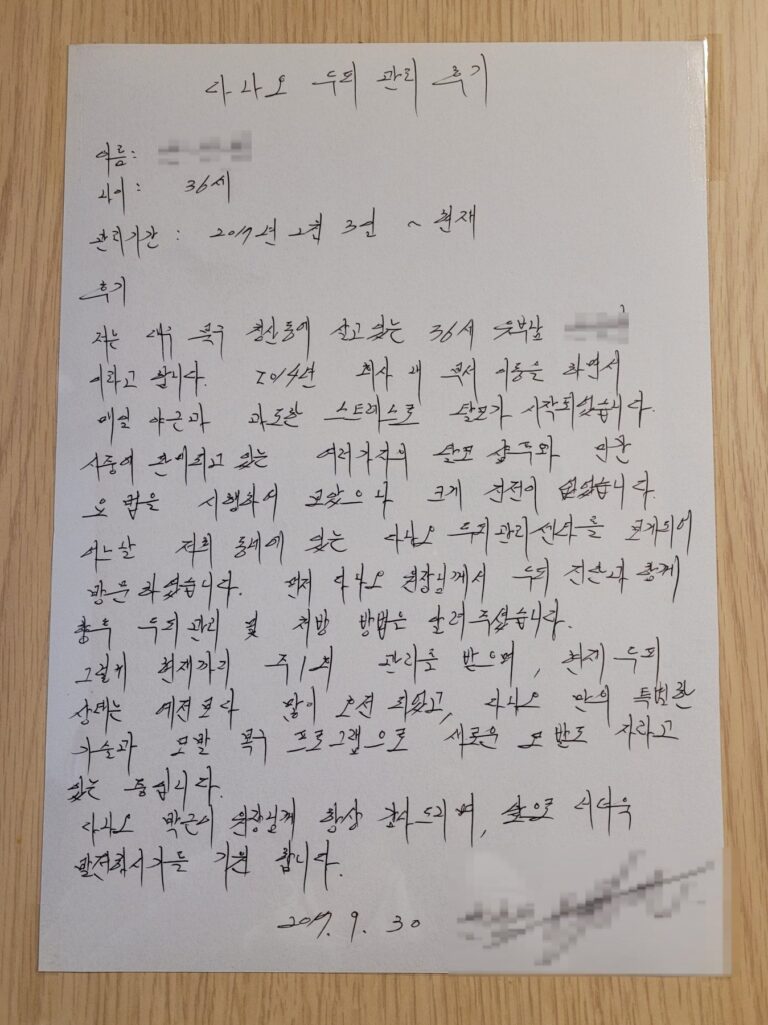 다나오 두피 관리 후기
이름:
나이 : 36세
관리기간 : 2017년 2월 3일 ~ 현재
후기
저는 대구 북구 침산동에 살고 있는 36세
이라고 합니다. 2014년 회사 내 부서 이동을 하면서
매일 야근과 과도한 스트레스로 탈모가 시작되었습니다.
시중에 판매되고 있는 여러가지의 탈모 샴푸와 민간
요법을 시행하여 보았으나 크게 진전이 없었습니다.
어느날 저희 동네에 있는 다나오 두피관리센타를 보게되어
방문 하였습니다. 먼저 다나오 원장님께서 두피 진단과 함께
향후 두피관리 및 처방 방법을 알려 주셨습니다.
그렇게 현재까지 주1회 관리를 받으며, 현재 두피
상태는 예전보다 많이 호전 되었고, 다나오 만의 특별한
기술과 모발 복구 프로그램으로 새로운 모발도 자라고
있는 중입니다.
다나오 원장님께 항상 감사드리며, 앞으로 더더욱
발전하시기를 기원 합니다.
2017. 9. 30